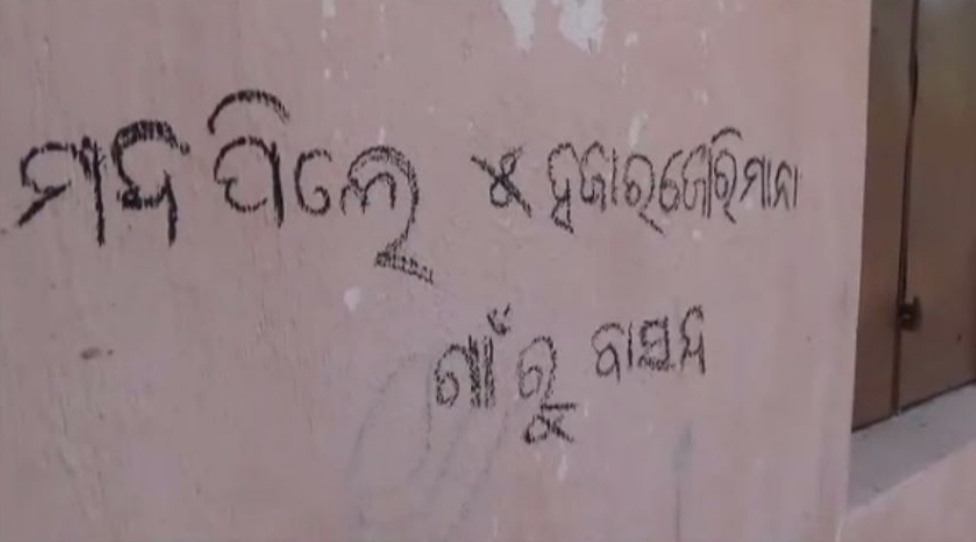 ମଦ ପିଲେ ୫ ହଜାର ଜୋରିମାନା
ଗାଁ ରୁ ବାସନ୍ଦ